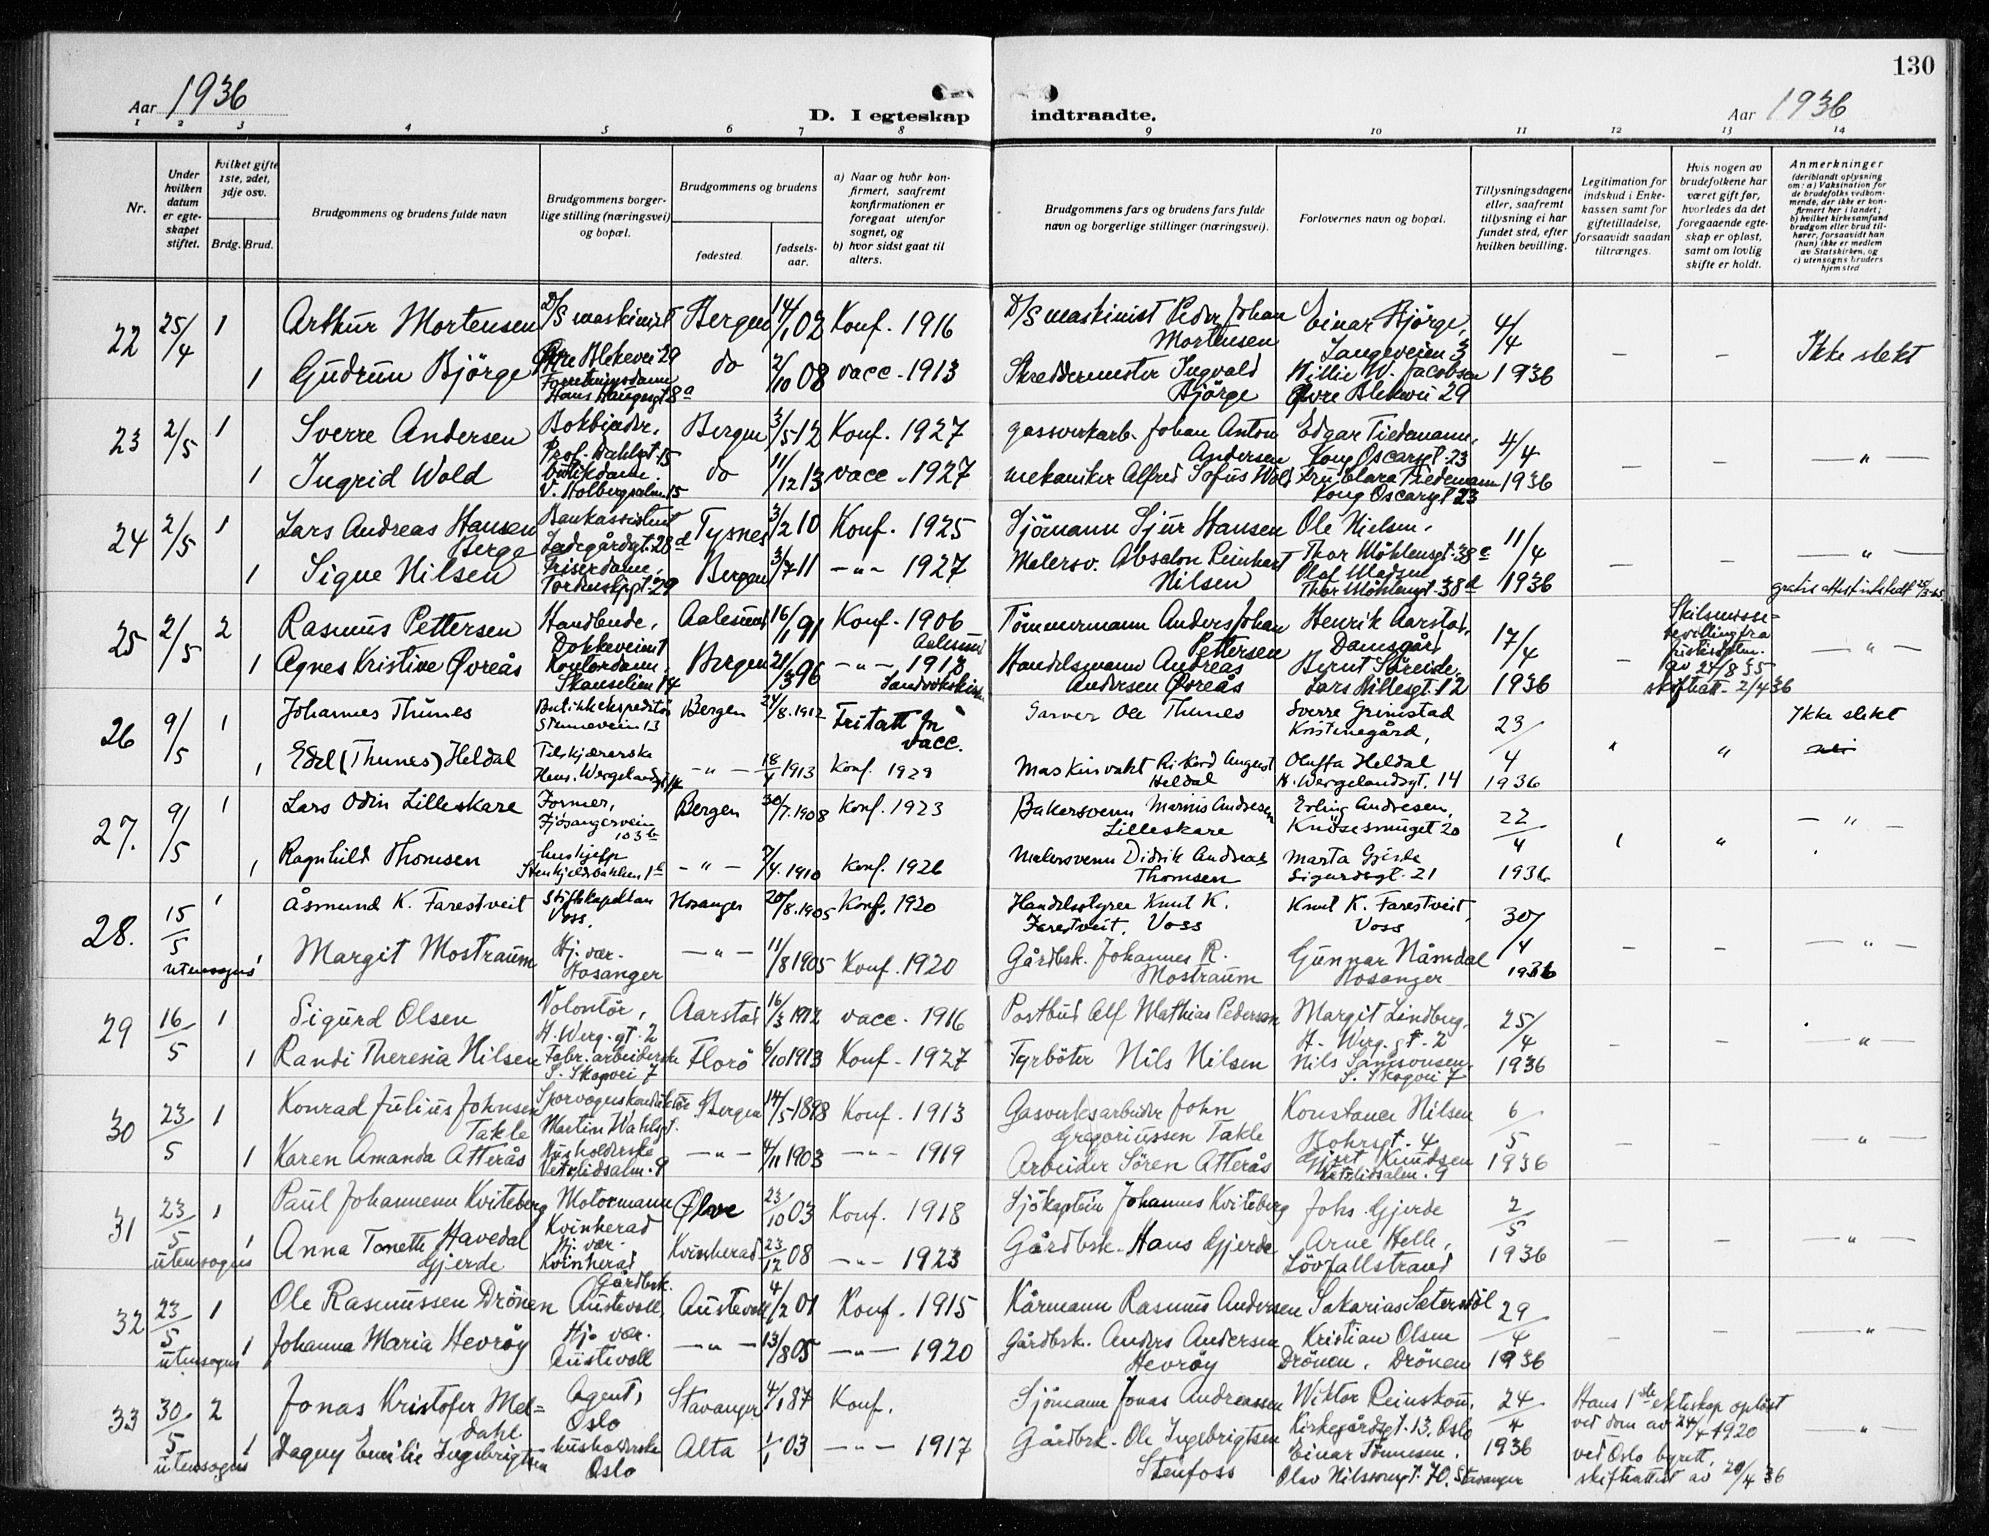 130
Aar 1936
D. I egteskap indtraadte.
Aar 1936
1 2 3 4 5 6 7 8 9 10 11 12 13 14
Nr.
Under hvilken datum er egteskapet stiftet.
Hvilket gifte 1ste, 2det, 3dje osv.
Brdg. Brud.
Brudgommens og brudens fulde navn
Brudgommens borgerlige stilling (næringsvei) og bopæl.
Brudgommens og brudens
fødested. fødselsaar.
a) Naar og hvor konfirmert, saafremt konfirmationen er foregaat utenfor sognet, og
b) hvor sidst gaat til alters.
Brudgommens fars og brudens fars fulde navn og borgerlige stillinger (næringsvei).
Forlovernes navn og bopæl.
Tillysningsdagene eller, saafremt tillysning ei har fundet sted, efter hvilken bevilling.
Legitimation for indskud i Enkekassen samt for giftetilladelse, forsaavidt saadan tiltrænges.
Hvis nogen av brudefolkene har været gift før, hvorledes da det foregaaende egteskap er opløst, samt om lovlig skifte er holdt.
Anmerkninger (deriblandt oplysning om: a) Vaksination for de brudefolks vedkommende, der ikke er konfirmert her i landet; b) hvilket kirkesamfund brudgom eller brud tilhører, forsaavidt han (hun) ikke er medlem av Statskirken, og c) utensogns bruders hjemsted
22 25/4 1 Arthur Mortensen D/S maskinist Øvre Blekevei 29 Bergen 14/1 02 Konf. 1916 D/S maskinist Peder Johan Mortensen Einar Bjørge, Langeveien 3 4/4 1936 – – Ikke slekt
1 Gudrun Bjørge Forretningsdame Hans Haugesgt 8a do 2/10 08 vacc. 1913 Skreddermester Ingvald Bjørge Willie W. Jacobsen Øvre Blekevei 29
23 2/5 1 Sverre Andersen Bokbinder, Prof. Dahlsgt. 15 Bergen 3/5 12 Konf. 1927 gassverkarb. Johan Anton Andersen Edgar Tiedemann, Kong Oscarsgt. 23 4/4 1936 – – – " –
1 Ingrid Wold butikdame V. Holbergsalm. 15 do 11/12 13 vacc. 1927 mekaniker Alfred Sofus Wold Fru Clara Tiedemann Kong Oscarsgt 23
24 2/5 1 Lars Andreas Hansen Berge Bankassistent Ladegårdsgt. 28d Tysnes 3/2 10 Konf. 1925 Sjömann Sjur Hansen Ole Nielsen, Thor Möhlensgt. 38a 11/4 1936 – – – " –
1 Signe Nilsen Friserdame, Tordenskjgt. 29 Bergen 3/7 11 – " – 1927 Malersv. Absalon Reinhart Nilsen Olaf Madsen Thor Möhlensgt 38d
gratis attest utstedt
25 2/5 2 Rasmus Pettersen Handlende, Dokkeveien 1 Aalesund 16/1 91 Konf. 1906 Aalesund Tömmermann Anders Johan Pettersen Henrik Aarstad, Damsgård 17/4 1936 – Skilsmisse-bevilling fra av 24/8 35 skifteatt. 2/4 36 – " –
1 Agnes Kristine Øvreås Kontordame, Skanselien 14 Bergen 21/3 96 – " – 1913 Sandvikskirken Handelsmann Andreas Andersen Øvreås Bernt Söreide, Lars Hillesgt. 12
26 9/5 1 Johannes Thunes Butikkekspeditör Stemmeveien 13 Bergen 24/8. 1912 Fritatt for vacc. Garver Ole Thunes Sverre Grimstad Kristinegård, 23/4 1936 " " Ikke slekt
1 Edel (Thunes) Heldal Tilskjærerske Henr. Wergelandsgt 14 – " – 18/1 1913 Konf. 1929 Maskinvakt Rikard August Heldal Oluffa Heldal H. Wergelandsgt. 14
27. 9/5 1 Lars Odin Lilleskare Former, Fjösangerveien 103b Bergen 30/7. 1908 Konf. 1923 Bakersvenn Marius Andresen Lilleskare Erling Andresen, Knösesmuget 20 22/4 1936 " – " –
1 Ragnhild Thomsen hushjelp Stenkjelderbakken 1b – " – 7/4. 1910 Konf. 1926 Malersvenn Didrik Andreas Thomsen Marta Gjerde Sigurdsgt. 21
28. 15/5 utensogns 1 Åsmund K. Farestveit Stiftskapellan Voss. Hosanger 20/8. 1905 Konf. 1920 Handelsstyrer Knut K. Farestveit, Voss Knut K. Farestveit, Voss 30/4 1936 – – – " –
1 Margit Mostraum Hj. vær. Hosanger – " – 11/8 1905 Konf. 1920 Gårdbrk. Johannes R. Mostraum Gunnar Nåmdal Hosanger
29 16/5 1 Sigurd Olsen Volontör, H. Werg. gt. 2 Aarstad 16/3 1912 vacc. 1916 Postbud Alf Mathias Pedersen Margit Lindberg, H. Werg. gt. 2 25/4 1936 – – – " –
1 Randi Theresia Nilsen Fabr. arbeiderske S. Skogvei 7 Florö 6/10 1913 Konf. 1927 Fyrböter Nils Nilsen Nils Samsonsen S. Skogvei 7
30 23/5 1 Konrad Julius Johnsen Takle Sporvognskonduktör Martin Wahlsgt. Bergen 14/5 1898 Konf. 1913 Gasverksarbeider John Gregoriussen Takle Konstance Nilsen Bohrsgt. 4 6/5 1936 – – – " –
1 Karen Amanda Atterås Husholderske Vetrlidsalm. 9 – " – 4/11 1903 – " – 1919 Arbeider Sören Atterås Gjert Knudsen Vetrlidsalm. 9
31 23/5 utensogns 1 Paul Johannenn Kviteberg Motormann Kvinherad Ølve 23/10 03 Konf. 1918 Sjökaptein Johannes Kviteberg Johs. Gjerde 2/5 1936 – – – " –
1 Anna Tonette Havedal Gjerde Hj. vær. Kvinherad Kvinherad 23/12 08 – " – 1923 Gårdbrk. Hans Gjerde Arne Helle, Lövfallstrand
32 23/5 utensogns 1 Ole Rasmussen Drönen Gårdbrk. Austevoll, Austevoll 4/2 01 Konf. 1915 Kårmann Rasmus Andersen Sakarias Sæterstöl 29/4 1936 – – – " –
1 Johanna Maria Hevröy Hj. vær. Austevoll – " – 13/8 05 – " – 1920 Gårdbrk. Anders Andersen Hevröy Kristian Olsen Drönen, Drönen
33 30/5 utensogns 2 Jonas Kristofer Meldahl Agent, Oslo Stavanger 4/1 87 Konf. Sjömann Jonas Andreassen Wiktor Reinskou, Kirkegårdsgt. 13, Oslo 24/4 1936 Hans 1ste ekteskap oplöst ved dom av 24/4 1920 ved Oslo byrett, skifteattest av 20/4 36 – " –
1 Dagny Emilie Ingebrigtsen husholderske Oslo Alta 1/1 03 – " – 1917 Gårdbrk. Ole Ingebrigtsen Stenfoss Einar Tönnesen, Olav Nilssonsgt. 70, Stavanger